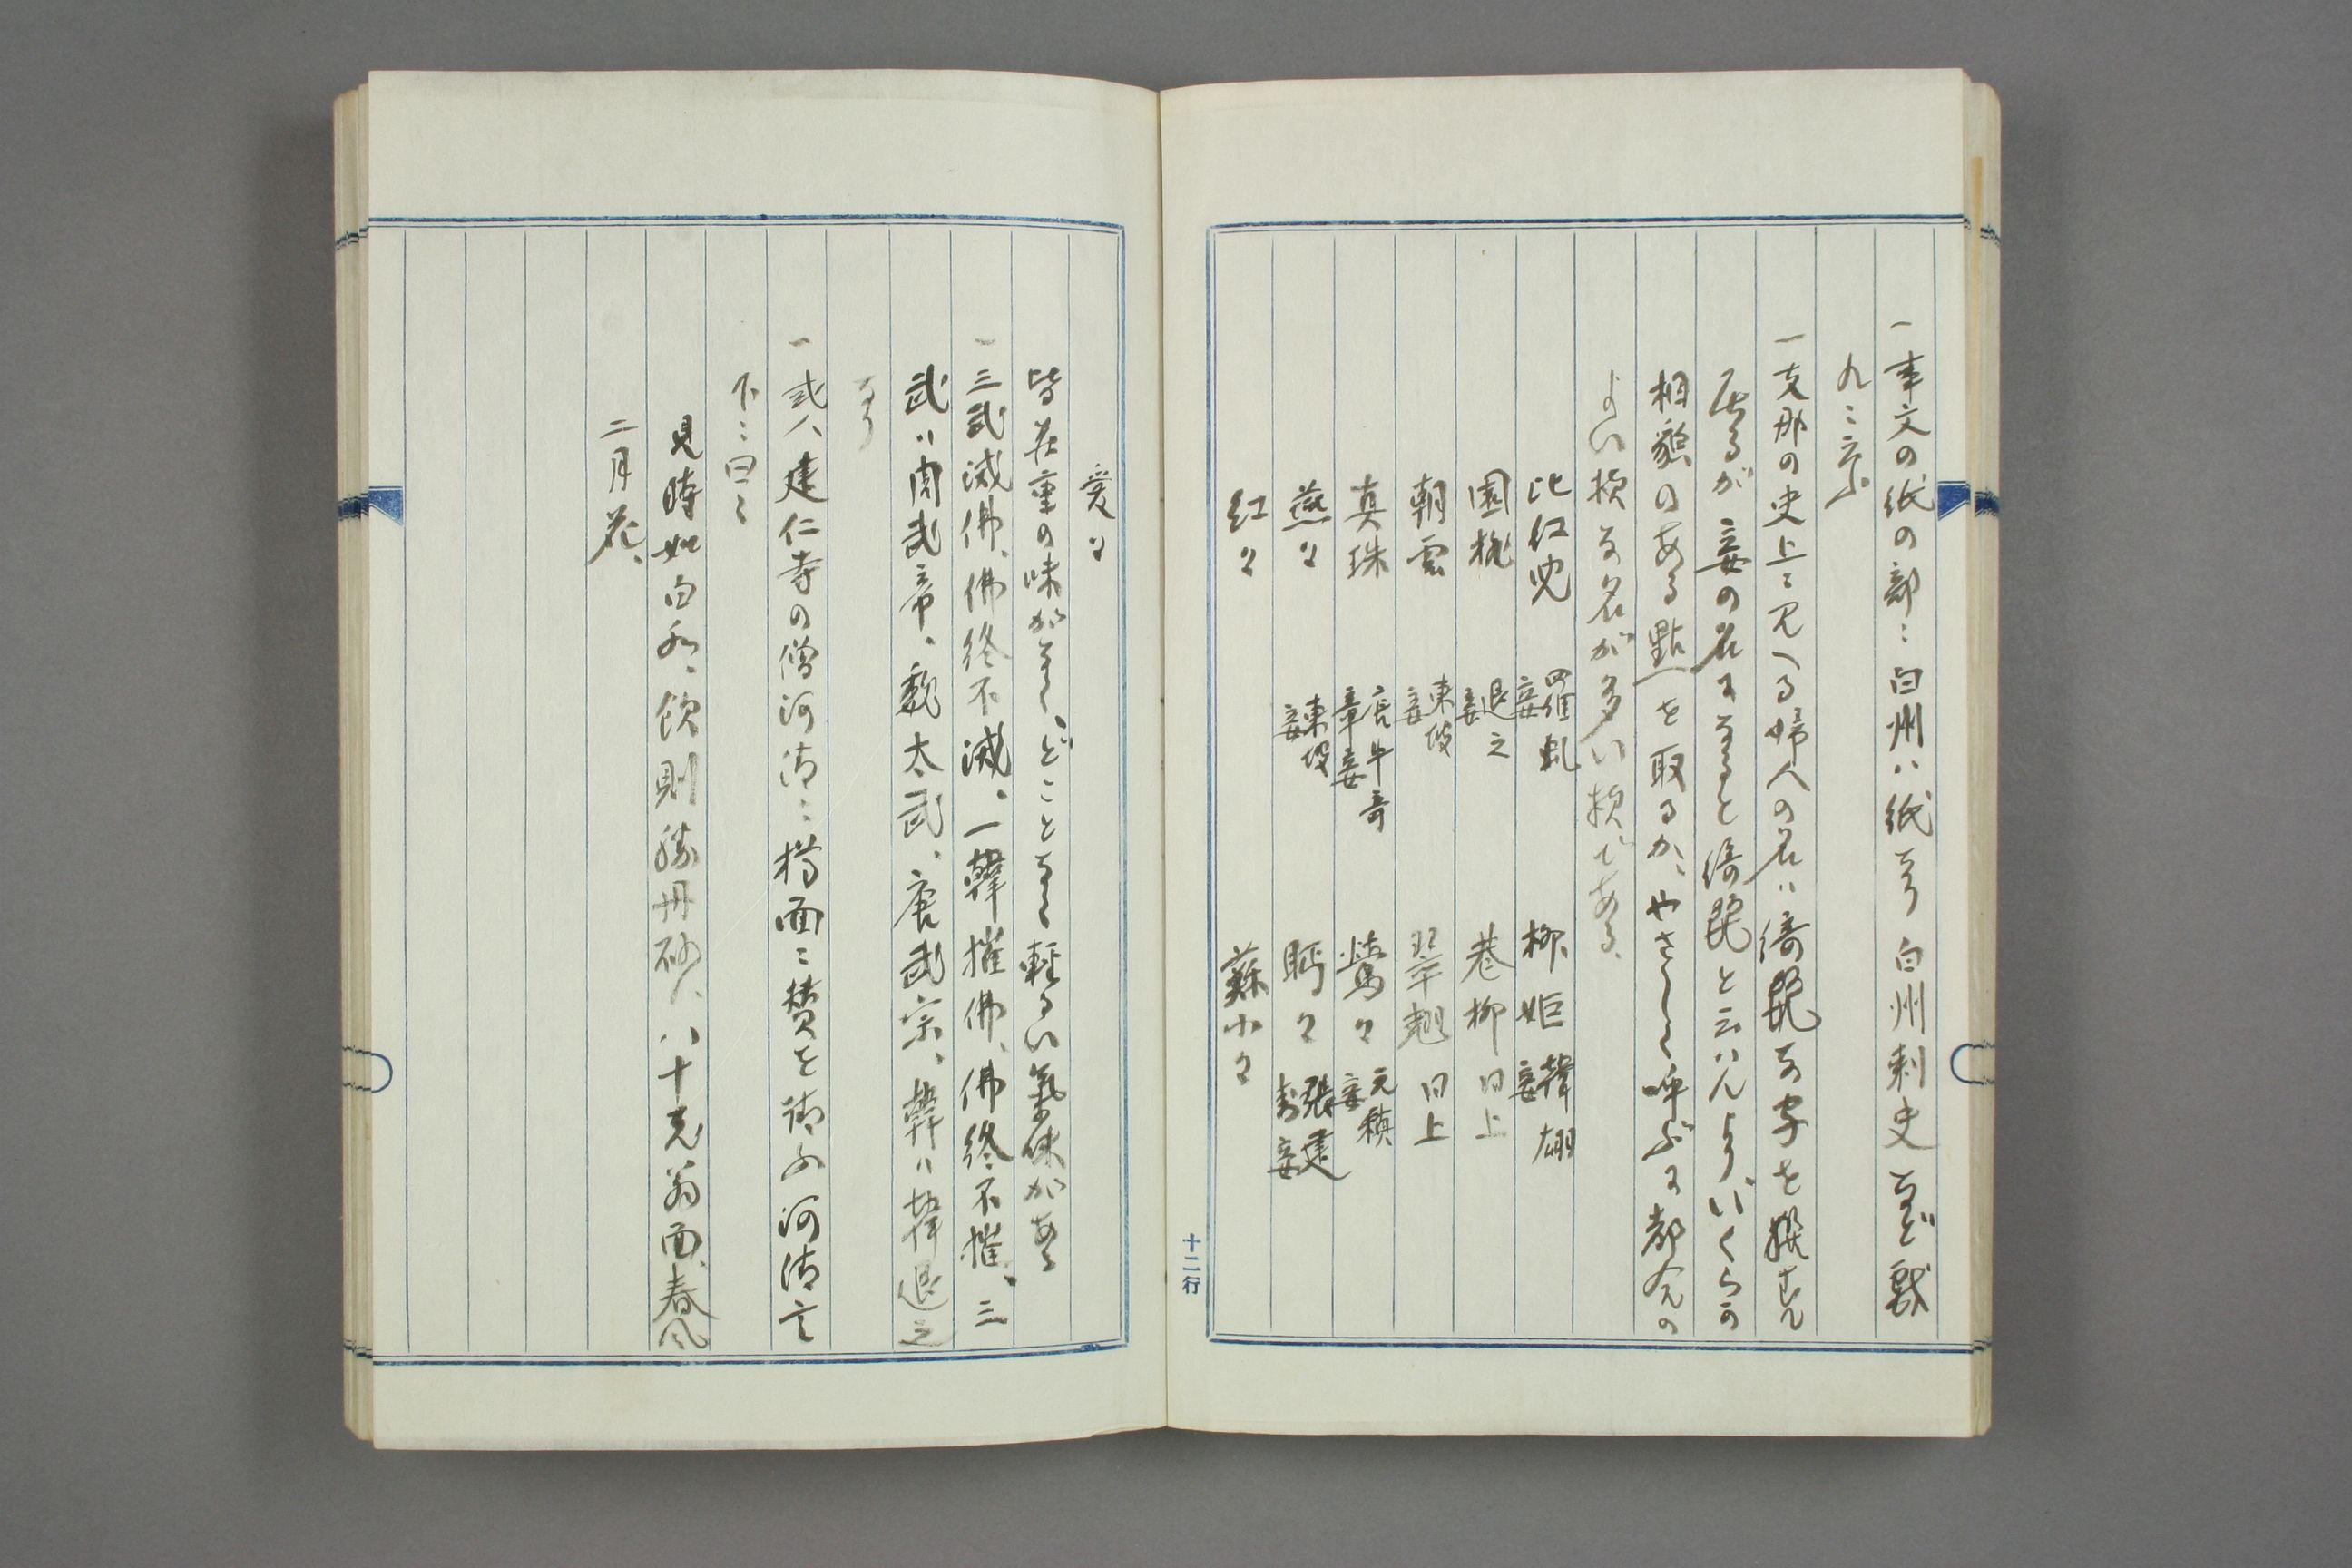 一事文の紙の部ニ白州ハ紙なり白州刺史など戯
九ニ言ふ
一支那の史上ニ見へる婦人の名ハ綺麗な字を撰むで
居るが妾の名になると綺麗と云ハんよりいくらか
相貌のある點を取るか、やさしく呼ぶに都合の
よい様な名が多い様である、
比紅児 羅虬妾 柳姫 韓翃妾
園桃 退之妾 巷柳 同上
朝雲 東坡妾 翠翹 同上
真珠 唐牛奇章妾 鶯々 元稹妾
燕々 東坡妾 眄々 張建封妾
紅々 蘇小々
十二行
愛々
皆荘重の味がなく、どことなく軽るい氣味がある
一三武滅佛、佛終不滅、一韓摧佛、佛終不摧、三
武ハ周武帝、魏太武、唐武宗、韓ハ韓退之
なり
一或人建仁寺の僧河清ニ扨面ニ賛を請ふ河清言
下ニ曰く
見時如白和、飲則勝丹砂、八十老翁面、春風
二月花、